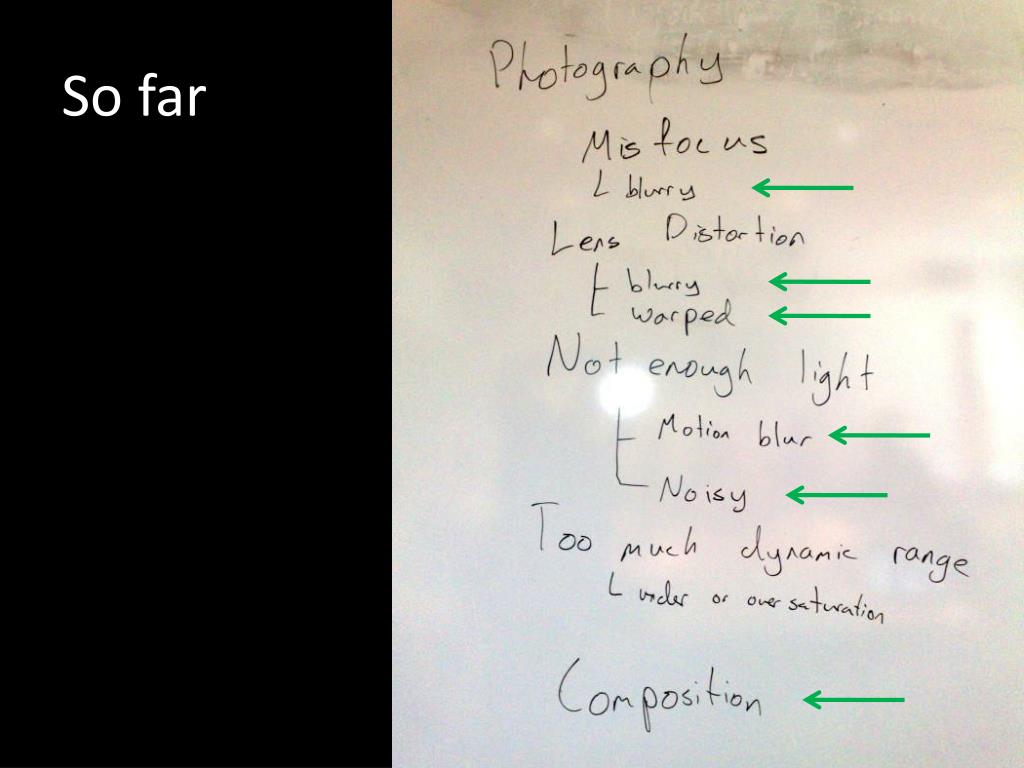 So far
Photography
Misfocus
blurry
Lens Distortion
blurry
warped
Not enough light
Motion blur
Noisy
Too much dynamic range
under or over saturation
Composition